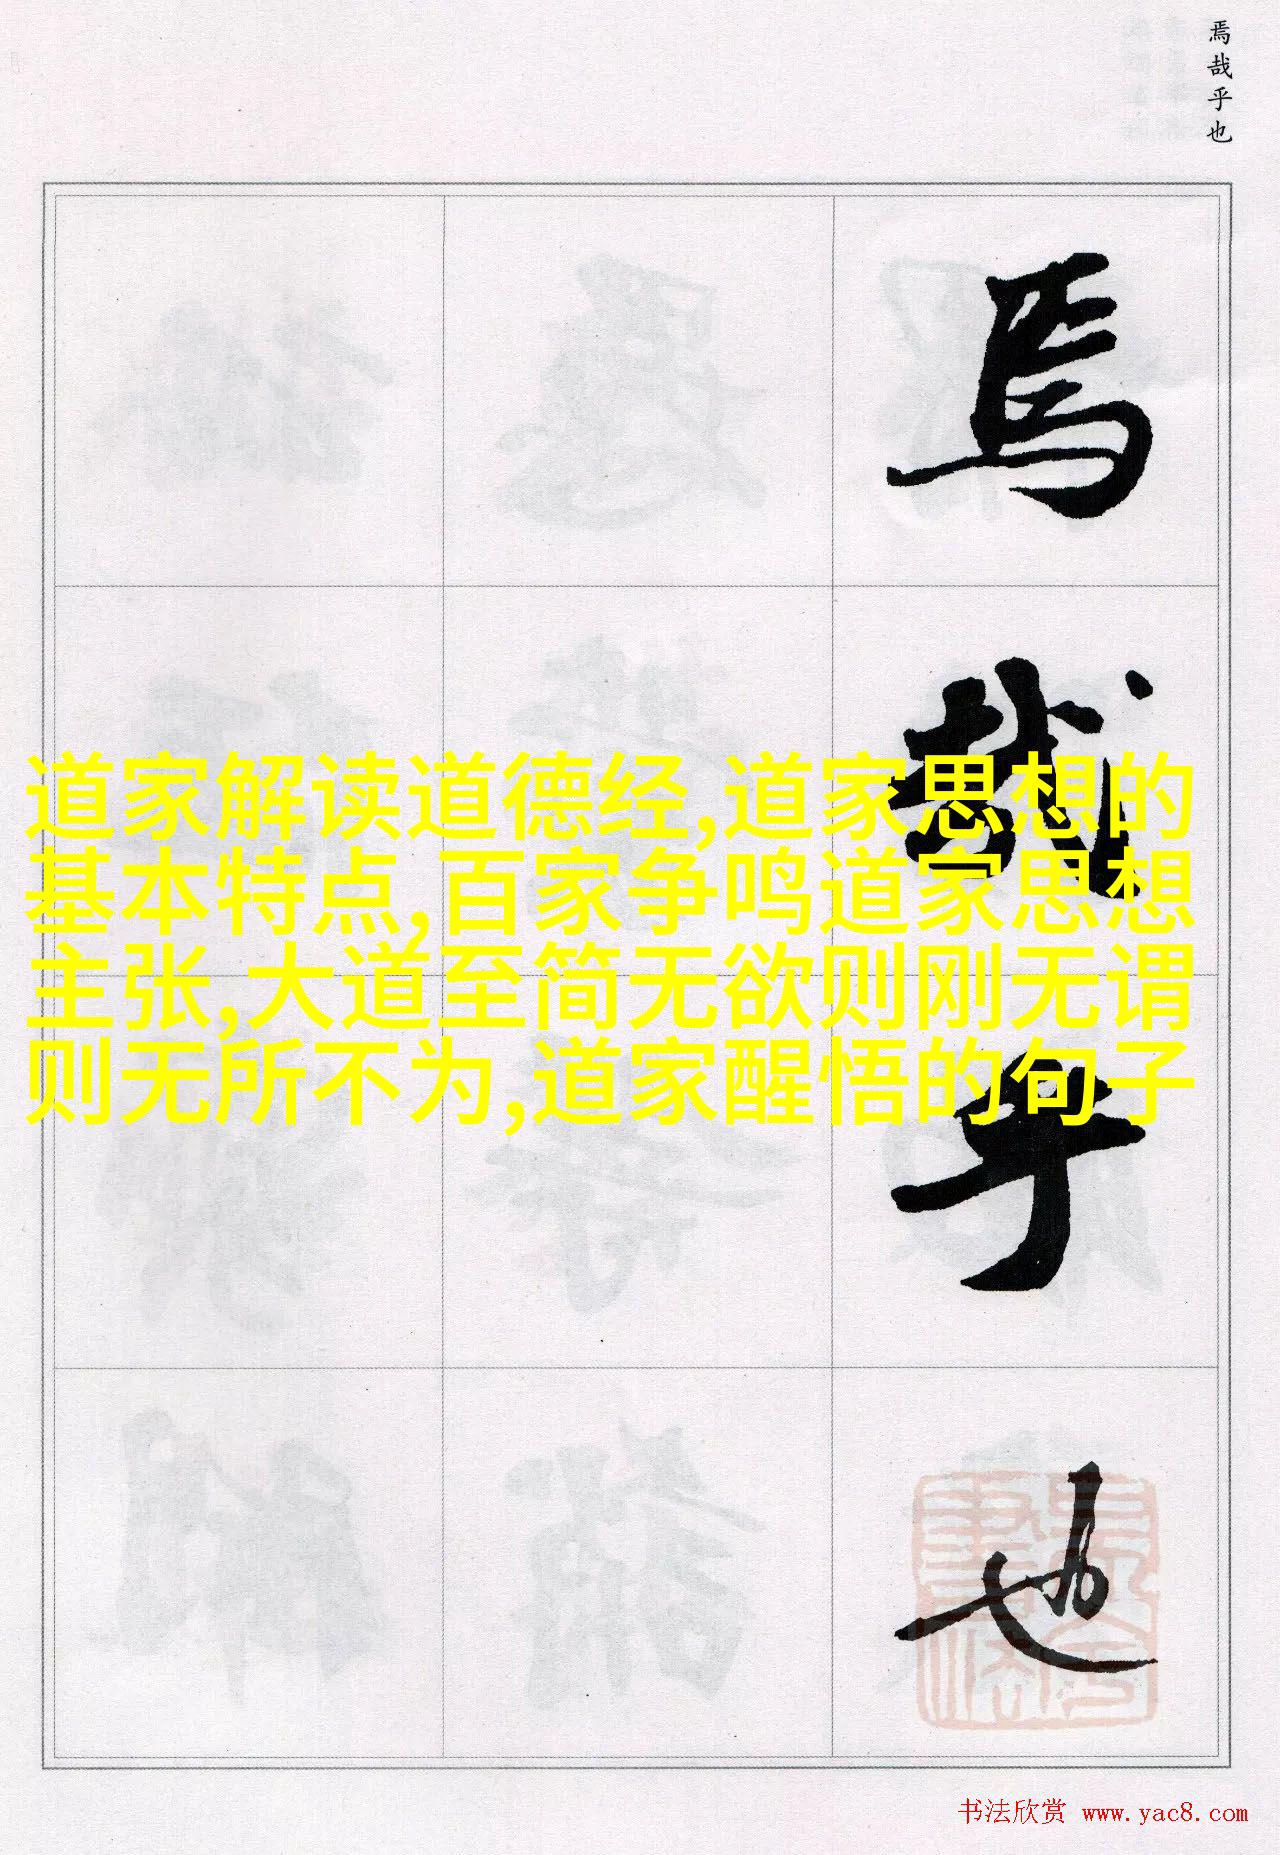 焉哉乎也
焉
哉
乎
也
道家解读道德经,道家思想的
基本特点,百家争鸣道家思想
主张,大道至简无欲则刚无谓
则无所不为,道家醒悟的句子
书法欣赏 www.yac8.com